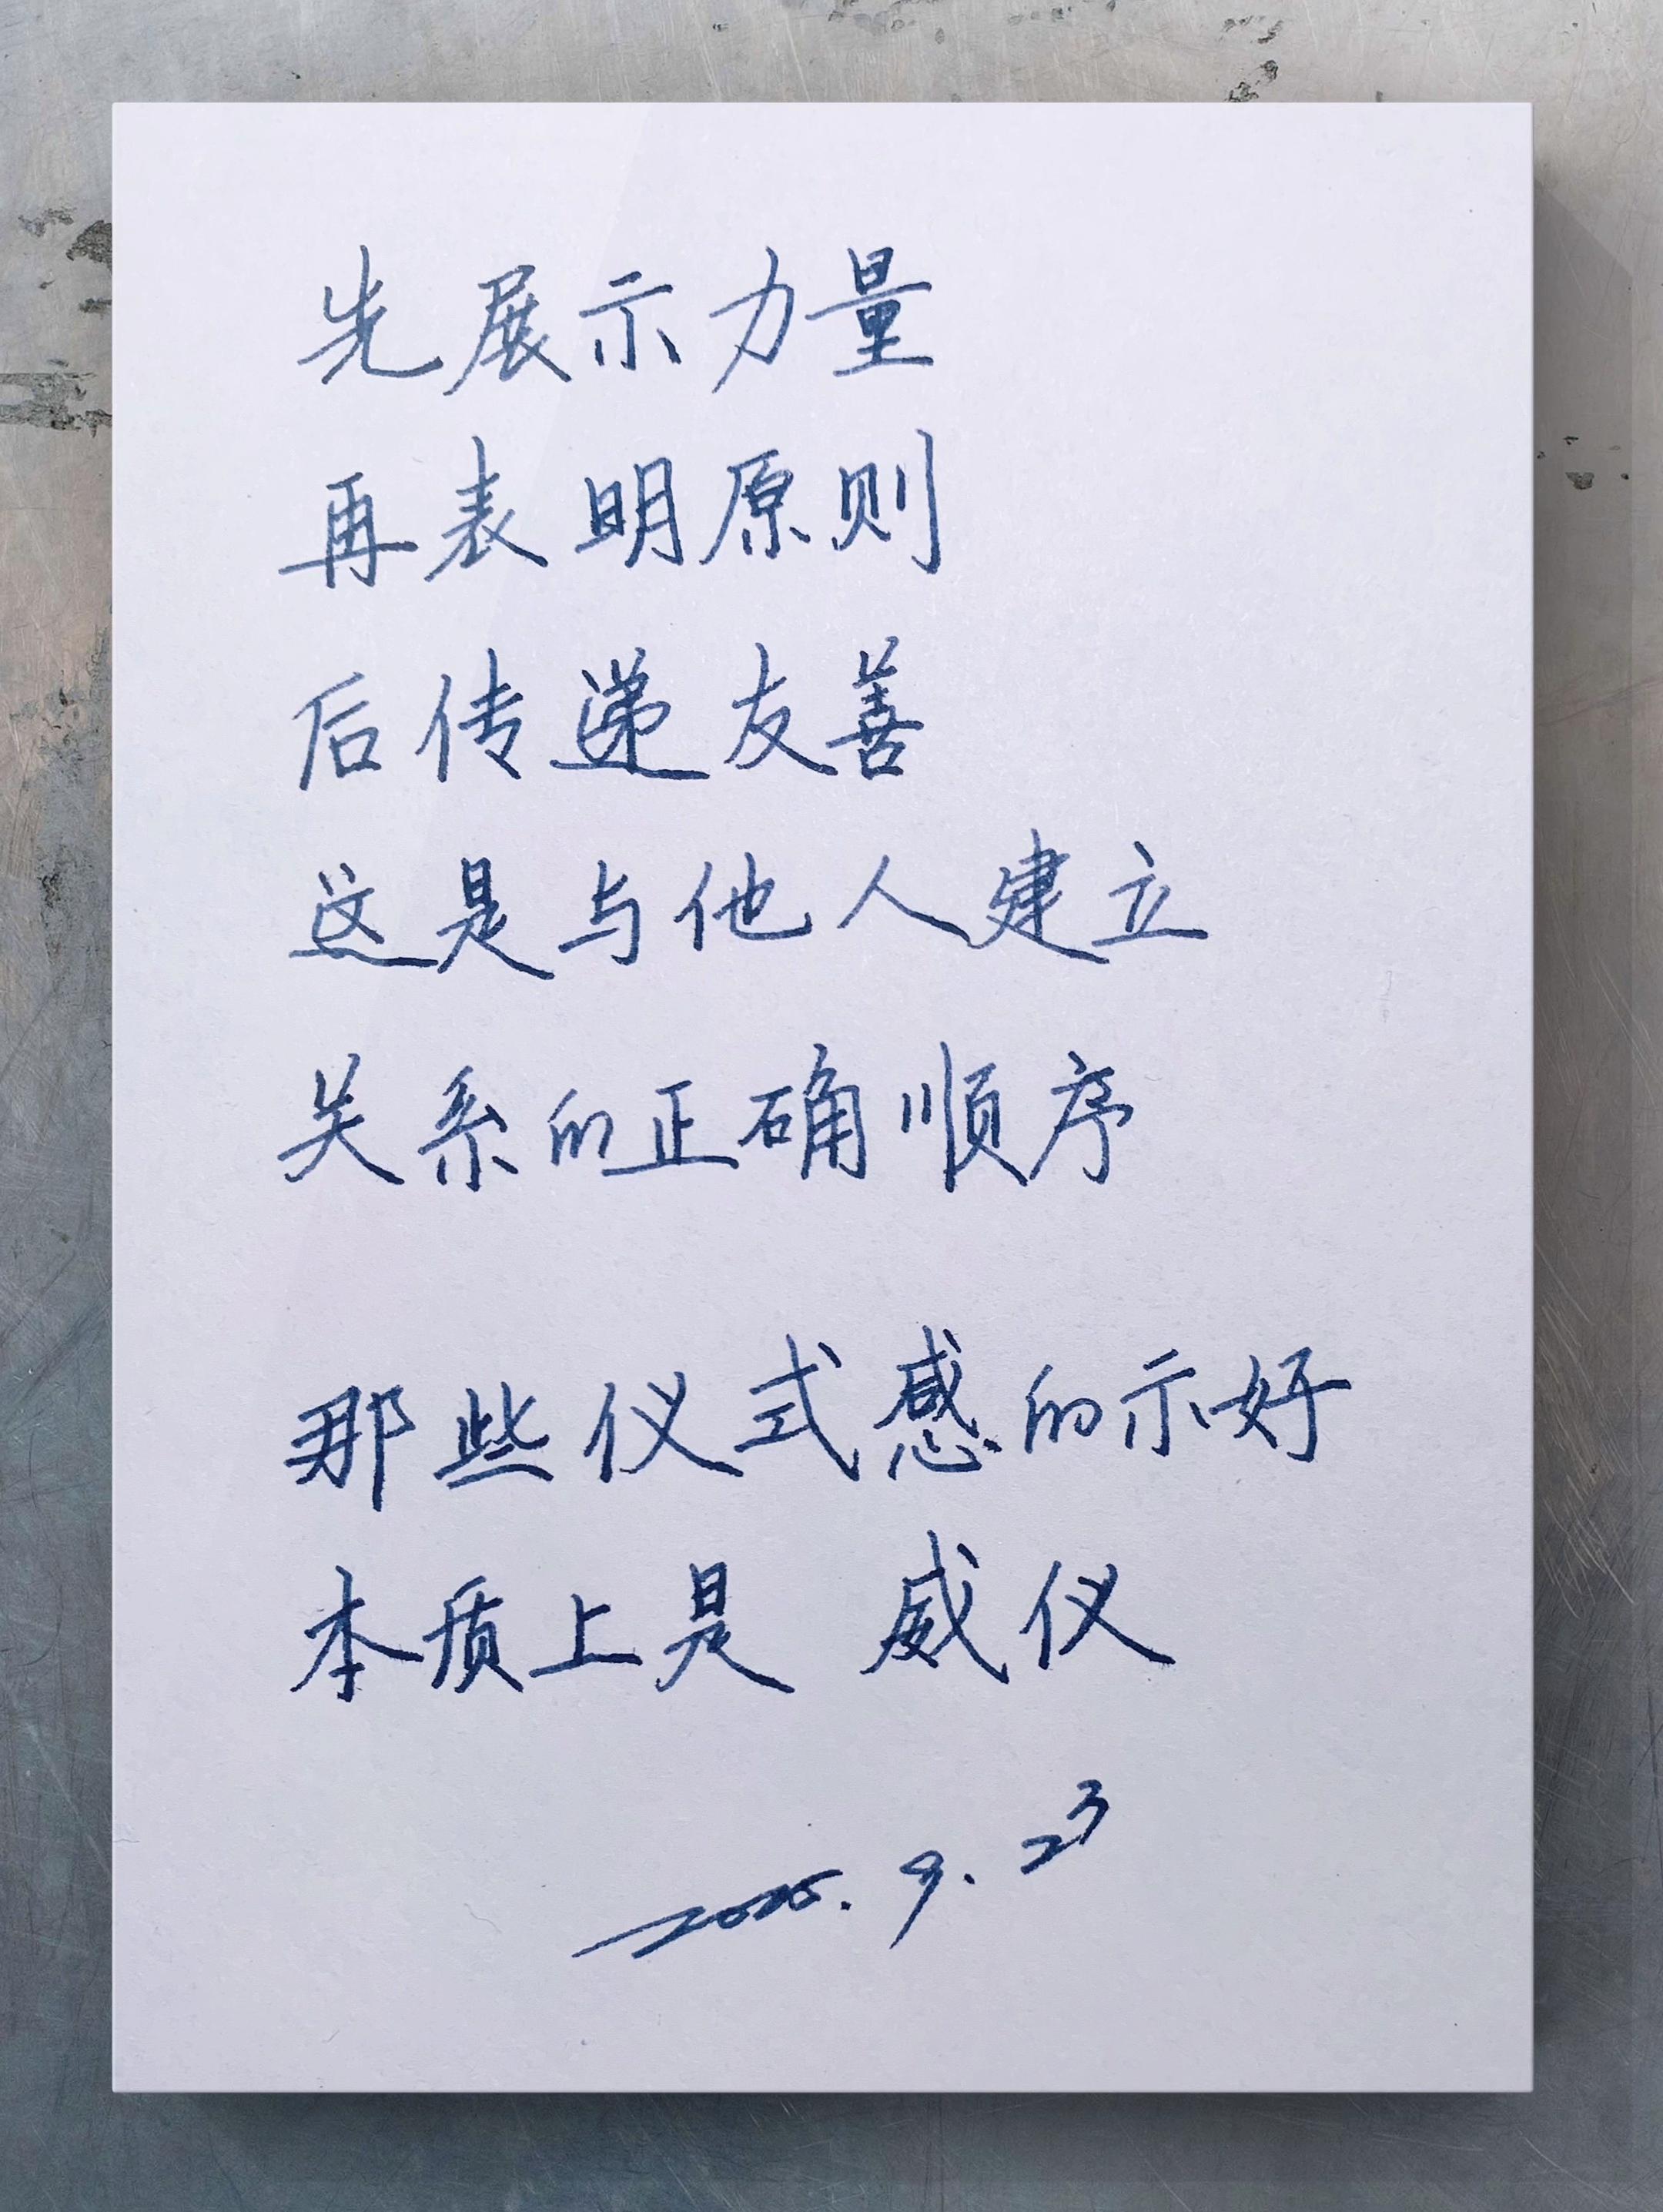 先展示力量
再表明原则
后传递友善
这是与他人建立
关系的正确顺序
那些仪式感的示好
本质上是 威仪
2025.9.23